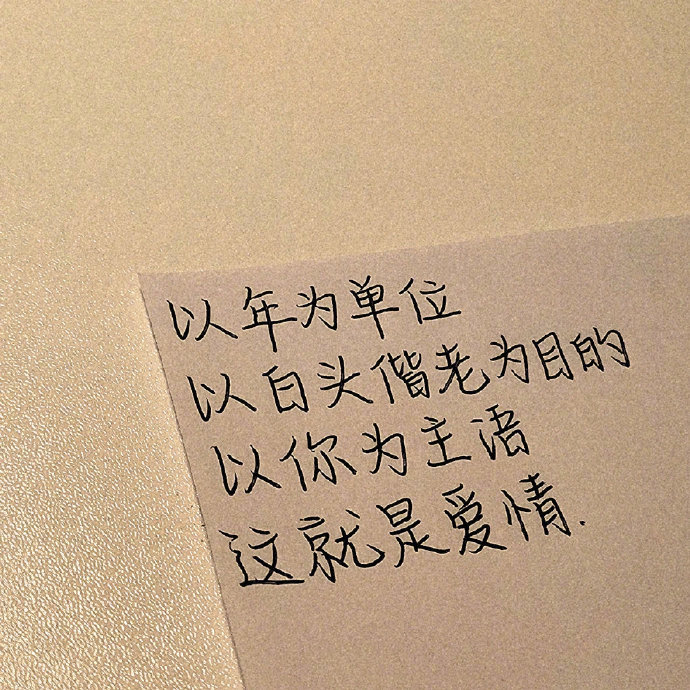 以年为单位
以白头偕老为目的
以你为主语
这就是爱情.